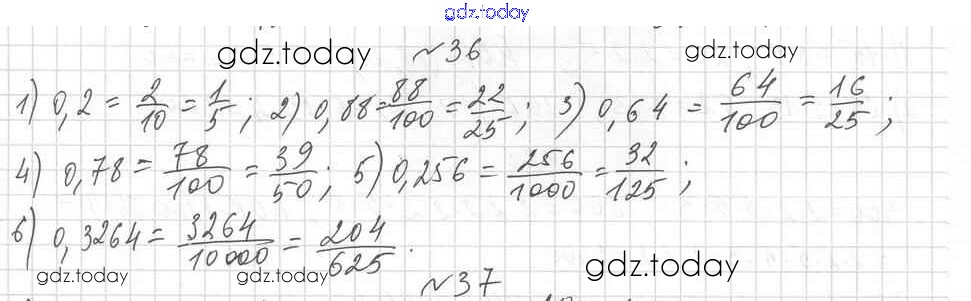 gdz.today
gdz.today №36 gdz.today
1) 0,2 = 2/10 = 1/5; 2) 0,88 = 88/100 = 22/25; 3) 0,64 = 64/100 = 16/25;
4) 0,78 = 78/100 = 39/50; 5) 0,256 = 256/1000 = 32/125;
6) 0,3264 = 3264/10000 = 204/625.
gdz.today gdz.today gdz.today
№37